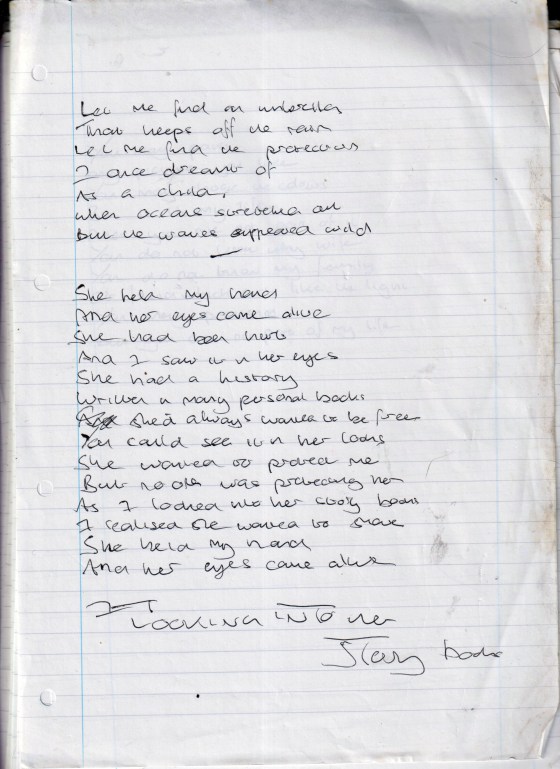 Let me find an umbrella
That keeps off the rain
Let me find the protections
I once dreamt of
As a child,
When oceans stretched out
But the waves appeared wild
She held my hand
And her eyes came alive
She had been hurt
And I saw it in her eyes
She had a history
Written in many personal books
She'd always wanted to be free
You could see it in her looks
She wanted to protect me
But no one was protecting her
As I looked into her story books
I realised she wanted to share
She held my hand
And her eyes came alive
LOOKING INTO her
Story books